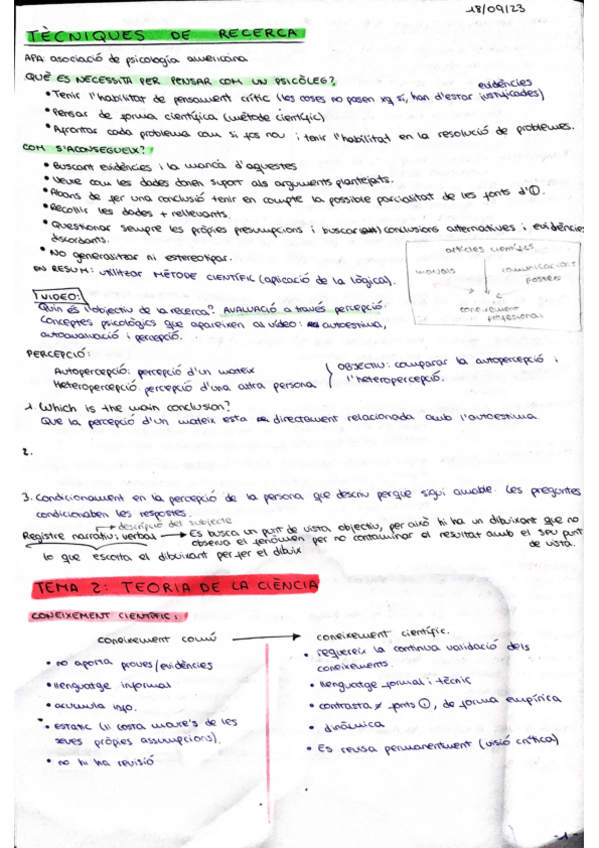 18/09/23
TÈCNIQUES DE RECERCA
APA: asociació de psicología americana
QUÈ ES NECESSITA PER PENSAR COM UN PSICÒLEG?
evidències
• Tenir l'habilitat de pensament crític (les coses no pasen xq sí, han d'estar justificades)
• Pensar de forma científica (mètode científic)
• Afrontar cada problema com si fos nou i tenir l'habilitat en la resolució de problemes.
COM S'ACONSEGUEIX?
• Buscant evidències i la manca d'aquestes
• Veure com les dades donen suport als arguments plantejats.
• Abans de fer una conclusió tenir en compte la possible parcialitat de les fonts d'①.
• Recollir les dades + rellevants.
• Questionar sempre les pròpies presumpcions i buscar conclusions alternatives i evidències
discordants.
• No generalitzar ni estereotipar.
EN RESUM: utilitzar MÈTODE CIENTÍFIC (aplicació de la lògica).
articles científics
manuals
comunicacions
posters
coneixement
profesional
VIDEO:
Quin és l'objectiu de la recerca? AVALUACIÓ a través percepció.
Conceptes psicològics que apareixen al vídeo: autoestima,
autoavaluació i percepció.
PERCEPCIÓ:
Autopercepció: percepció d'un mateix
Heteropercepció percepció d'una altra persona
OBJECTIU: comparar la autopercepció i
l'heteropercepció.
1. Which is the main conclusion?
Que la percepció d'un mateix esta directament relacionada amb l'autoestima
2.
3. Condicionament en la percepció de la persona que descriu perque sigui amable. Les preguntes
condicionaben les respostes.
descripció del subjecte
Registre narratiu: verbal → Es busca un punt de vista objectiu, per això hi ha un dibuixant que no
observa el fenòmen per no contaminar el resultat amb el seu punt
de vista.
lo que escolta el dibuixant per fer el dibuix
TEMA 2: TEORIA DE LA CIÈNCIA
CONEIXEMENT CIENTÍFIC:
coneixement comú → coneixement científic.
• no aporta proves/evidències
• llenguatge informal
• acumula info.
• estatic (li costa moure's de les
seves pròpies assumpcions).
• no hi ha revisió
• requereix la continua validació dels
coneixements.
• llenguatge formal i tècnic
• contrasta ≠ fonts ①, de forma empírica
• dinàmica
• Es revisa permanentment (visió crítica)
-1-